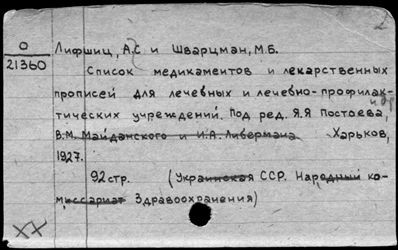 2
О
21360
Лифшиц, А.С. и Шварцман, М.Б.
Список медикаментов и лекарственных
прописей для лечебных и лечебно-профилак-
тических учреждений. Под ред. Я.Я Постоева, и др
В.М. Майданского и И.А. Либермана Харьков,
1927.
92 стр. (Украинская ССР. Народный ко-
миссариат Здравоохранения)
XX